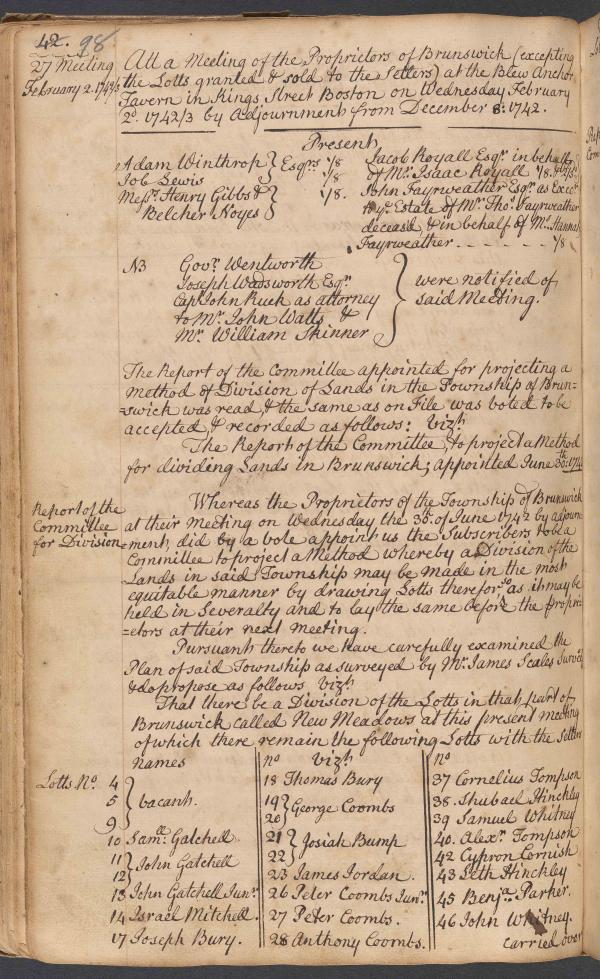 42. 98
27 Meeting
February 2. 1742/3
Att a Meeting of the Proprietors of Brunswick (excepting
the Lotts granted & sold to the Setlers) at the Blew Anchor
Tavern in Kings Street Boston on Wednesday February
2d. 1742/3 by Adjournment from December 8: 1742.
Present
Adam Winthrop } Esqrs 1/8
Job Lewis 1/8
Messrs. Henry Gibbs & } 1/8.
Belcher Noyes
Jacob Royall Esqr. in behalf
of Mr. Isaac Royall 1/8.
John Fayrweather Esqr. as Excr.
to ye. Estate of Mr. Thos. Fayrweather
deceas'd, & in behalf of Ms. Hannah
Fayrweather - - - - - 1/8
NB Govr. Wentworth
Joseph Wadsworth Esqr.
Capt. John Ruck as attorney
to Mr. John Watts &
Mr. William Skinner
} were notified of
said Meeting.
The Report of the Committee appointed for projecting a
Method of Division of Lands in the Township of Brun=
=swick was read, & the same as on File was voted to be
accepted, & recorded as follows: vizt.
The Report of the Committee, to project a Method
for dividing Lands in Brunswick; appointed June 30th.
Report of the
Committee
for Division
Whereas the Proprietors of the Township of Brunswick
at their meeting on Wednesday the 30. of June 1742 by adjourn=
=ment, did by a vote appoint us the Subscribers to be a
Committee to project a Method whereby a Division of the
Lands in said Township may be made in the most
equitable manner by drawing Lotts therefor, so as it may be
held in Severalty and to lay the same before the Propri=
=etors at their next meeting.
Pursuant thereto we have carefully examined the
Plan of said Township as surveyed by Mr. James Scales
& do propose as follows vizt.
That there be a Division of the Lotts in that part of
Brunswick called New Meadows at this present meeting
of which there remain the following Lotts with the Setlers
names vizt.
Lotts No. 4
5 } vacant.
9
10 Samll. Gatchell
11 } John Gatchell
12
13 John Gatchell Junr.
14 Israel Mitchell.
17 Joseph Bury.
no
18 Thomas Bury
19 } George Coombs
20
21 } Josiah Bump
22
23 James Jordan.
26 Peter Coombs Junr.
27 Peter Coombs.
28 Anthony Coombs.
no
37 Cornelius Tompson
38. Shubael Hinckley
39 Samuel Whitney
40. Alexr. Tompson
42 Cypron Cornish
43 Seth Hinckley
45 Benja. Parker.
46 John Whitney.
carried over